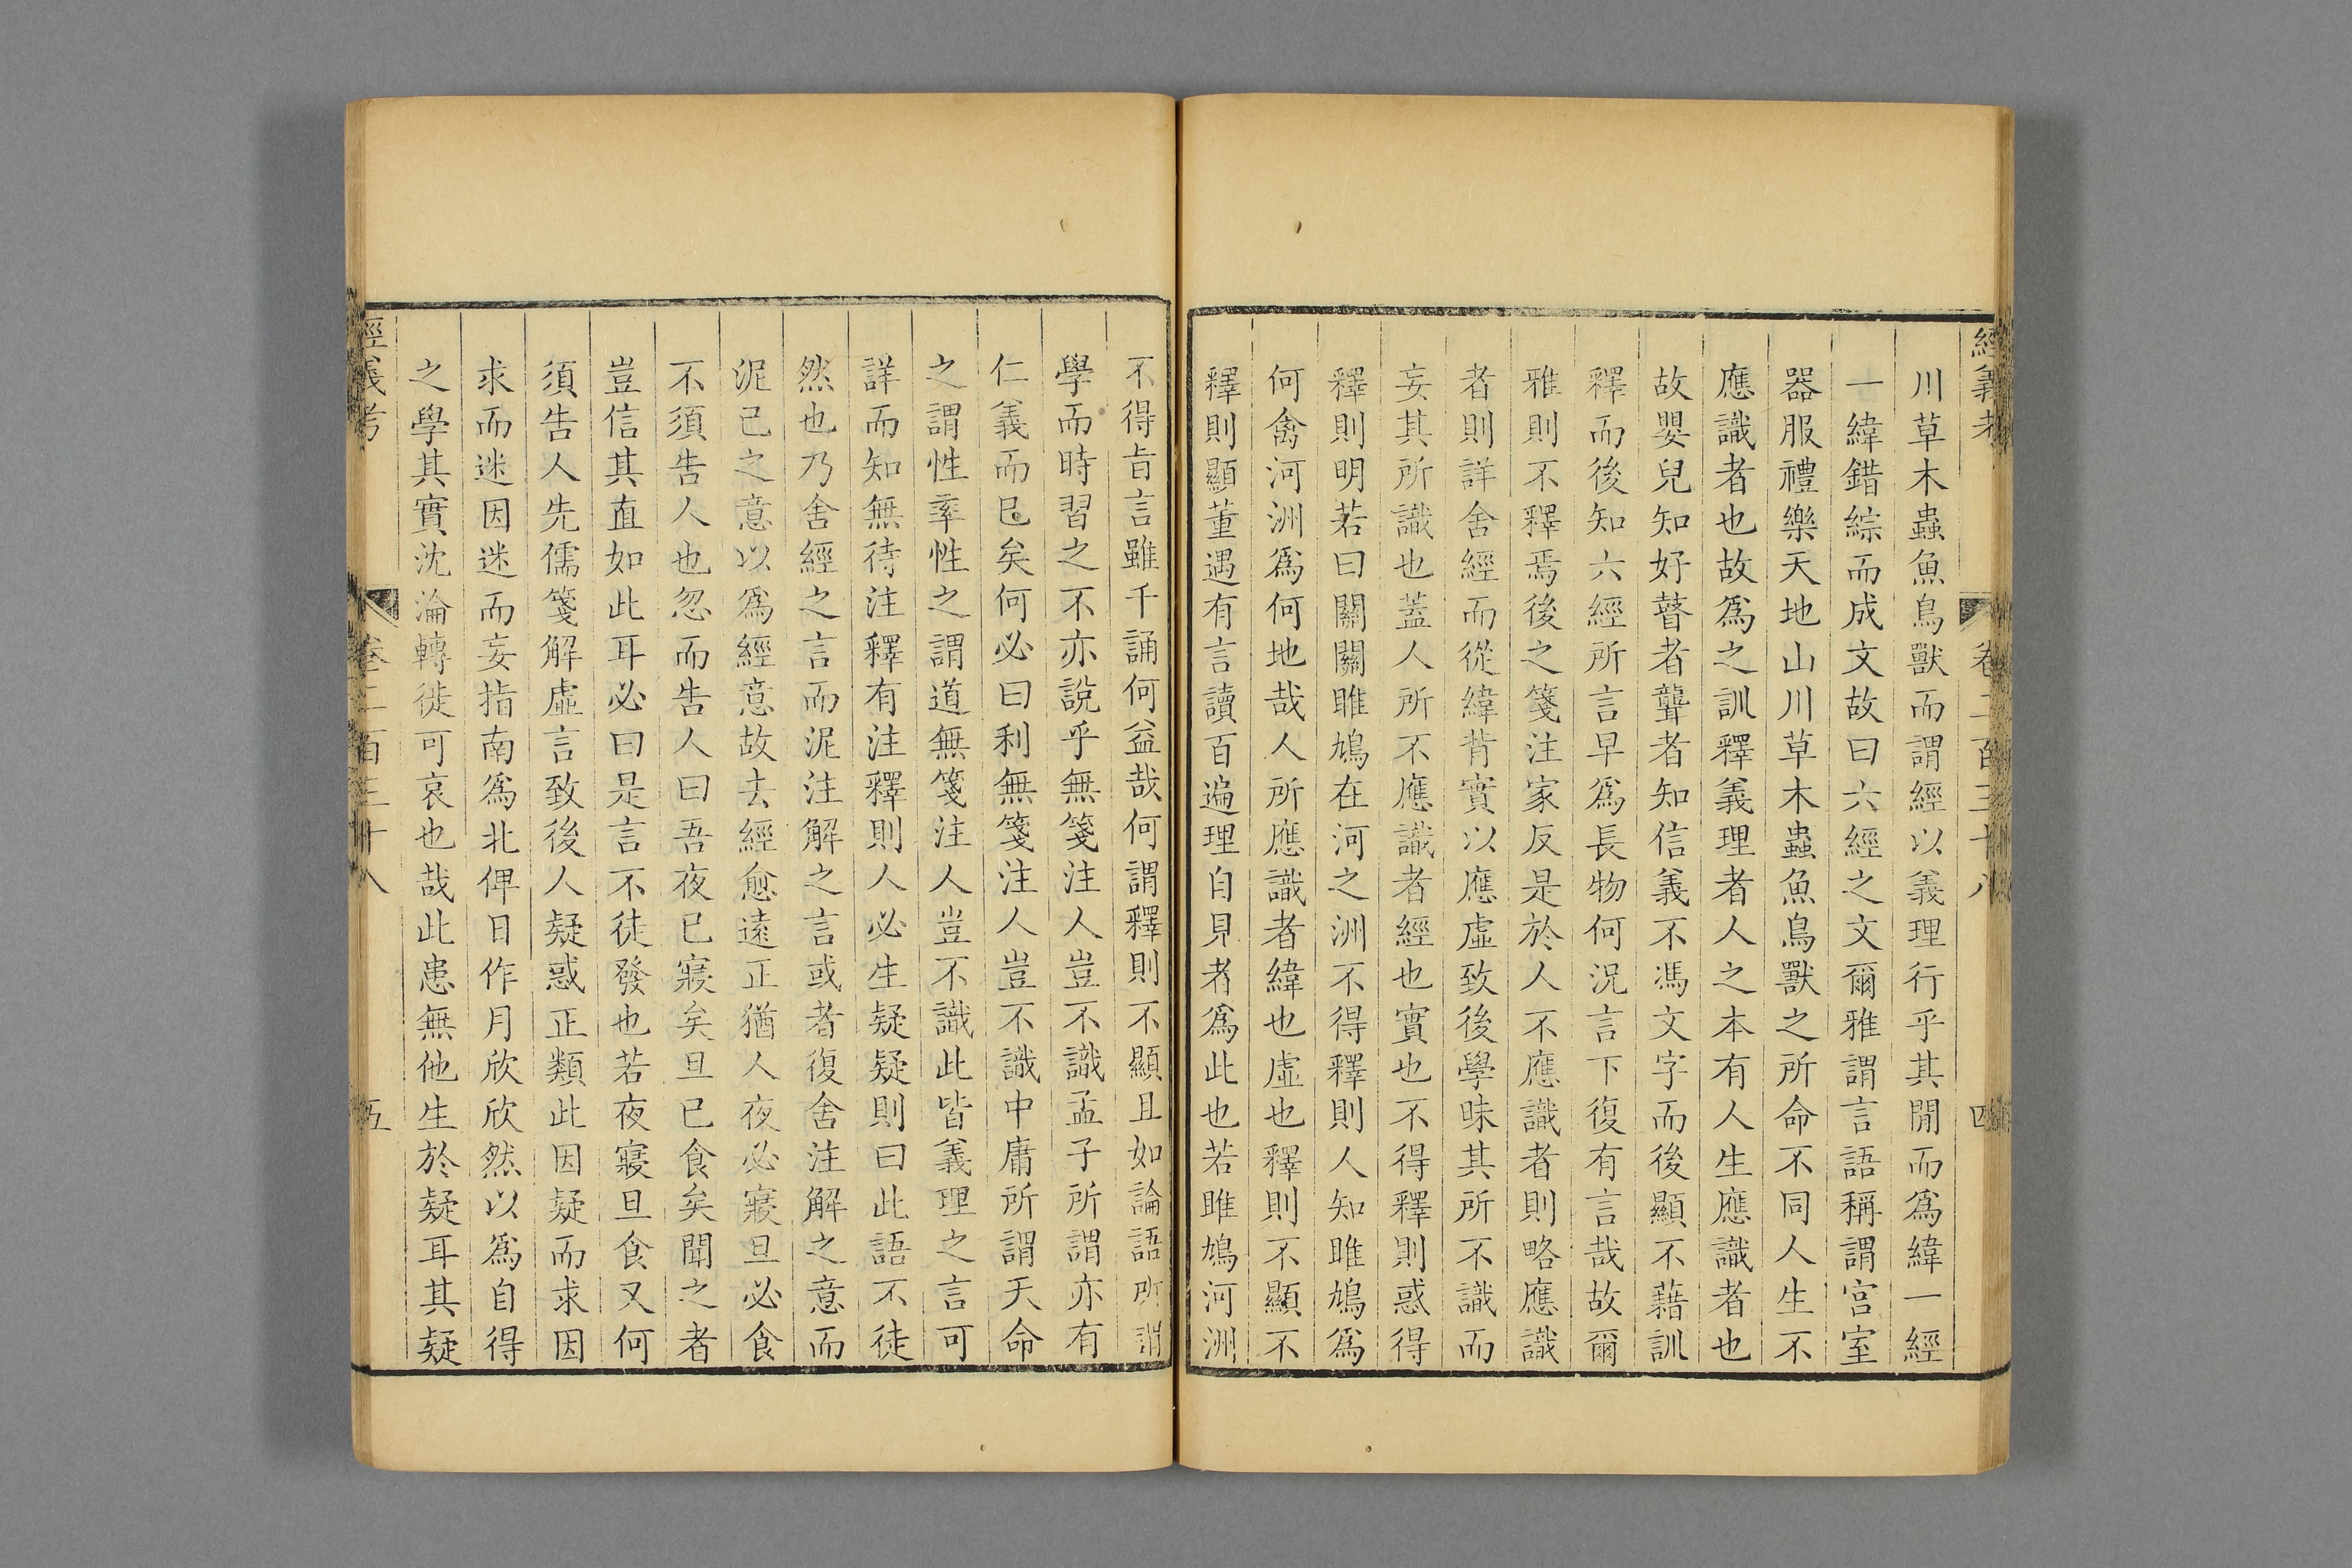 經義考 卷二百三十八 四
川草木蟲魚鳥獸而謂經以義理行乎其閒而爲緯一經
一緯錯綜而成文故曰六經之文爾雅謂言語稱謂宫室
器服禮樂天地山川草木蟲魚鳥獸之所命不同人生不
應識者也故爲之訓釋義理者人之本有人生應識者也
故嬰兒知好瞽者聾者知信義不馮文字而後顯不藉訓
釋而後知六經所言早爲長物何況言下復有言哉故爾
雅則不釋焉後之箋注家反是於人不應識者則略應識
者則詳舍經而從緯背實以應虛致後學昧其所不識而
妄其所識也蓋人所不應識者經也實也不得釋則惑得
釋則明若曰關關雎鳩在河之洲不得釋則人知雎鳩爲
何禽河洲爲何地哉人所應識者緯也虛也釋則不顯不
釋則顯董遇有言讀百遍理自見者爲此也若雎鳩河洲
不得旨言雖千誦何益哉何謂釋則不顯且如論語所謂
學而時習之不亦說乎無箋注人豈不識孟子所謂亦有
仁義而巳矣何必曰利無箋注人豈不識中庸所謂天命
之謂性率性之謂道無箋注人豈不識此皆義理之言可
詳而知無待注釋有注釋則人必生疑疑則曰此語不徒
然也乃舍經之言而泥注解之言或者復舍注解之意而
泥己之意以爲經意故去經愈遠正猶人夜必寢旦必食
不須告人也忽而告人曰吾夜已寢矣旦已食矣聞之者
豈信其直如此耳必曰是言不徒發也若夜寢旦食又何
須告人先儒箋解虛言致後人疑惑正類此因疑而求因
求而迷因迷而妄指南爲北俾日作月欣欣然以爲自得
之學其實沈淪轉徙可哀也哉此患無他生於疑耳其疑
經義考 卷二百三十八 五